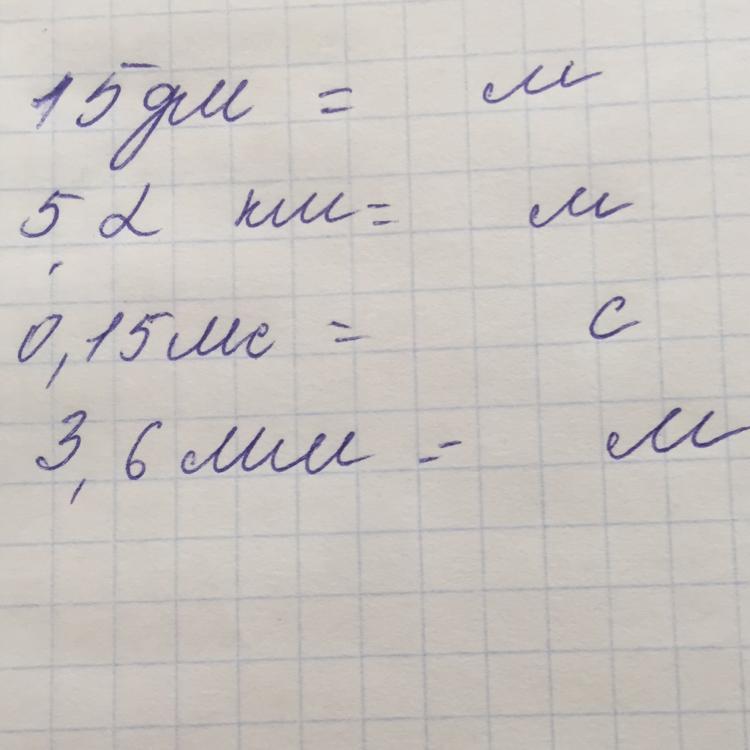 15дм = м
5,2 км = м
0,15мс = с
3,6 мм = м